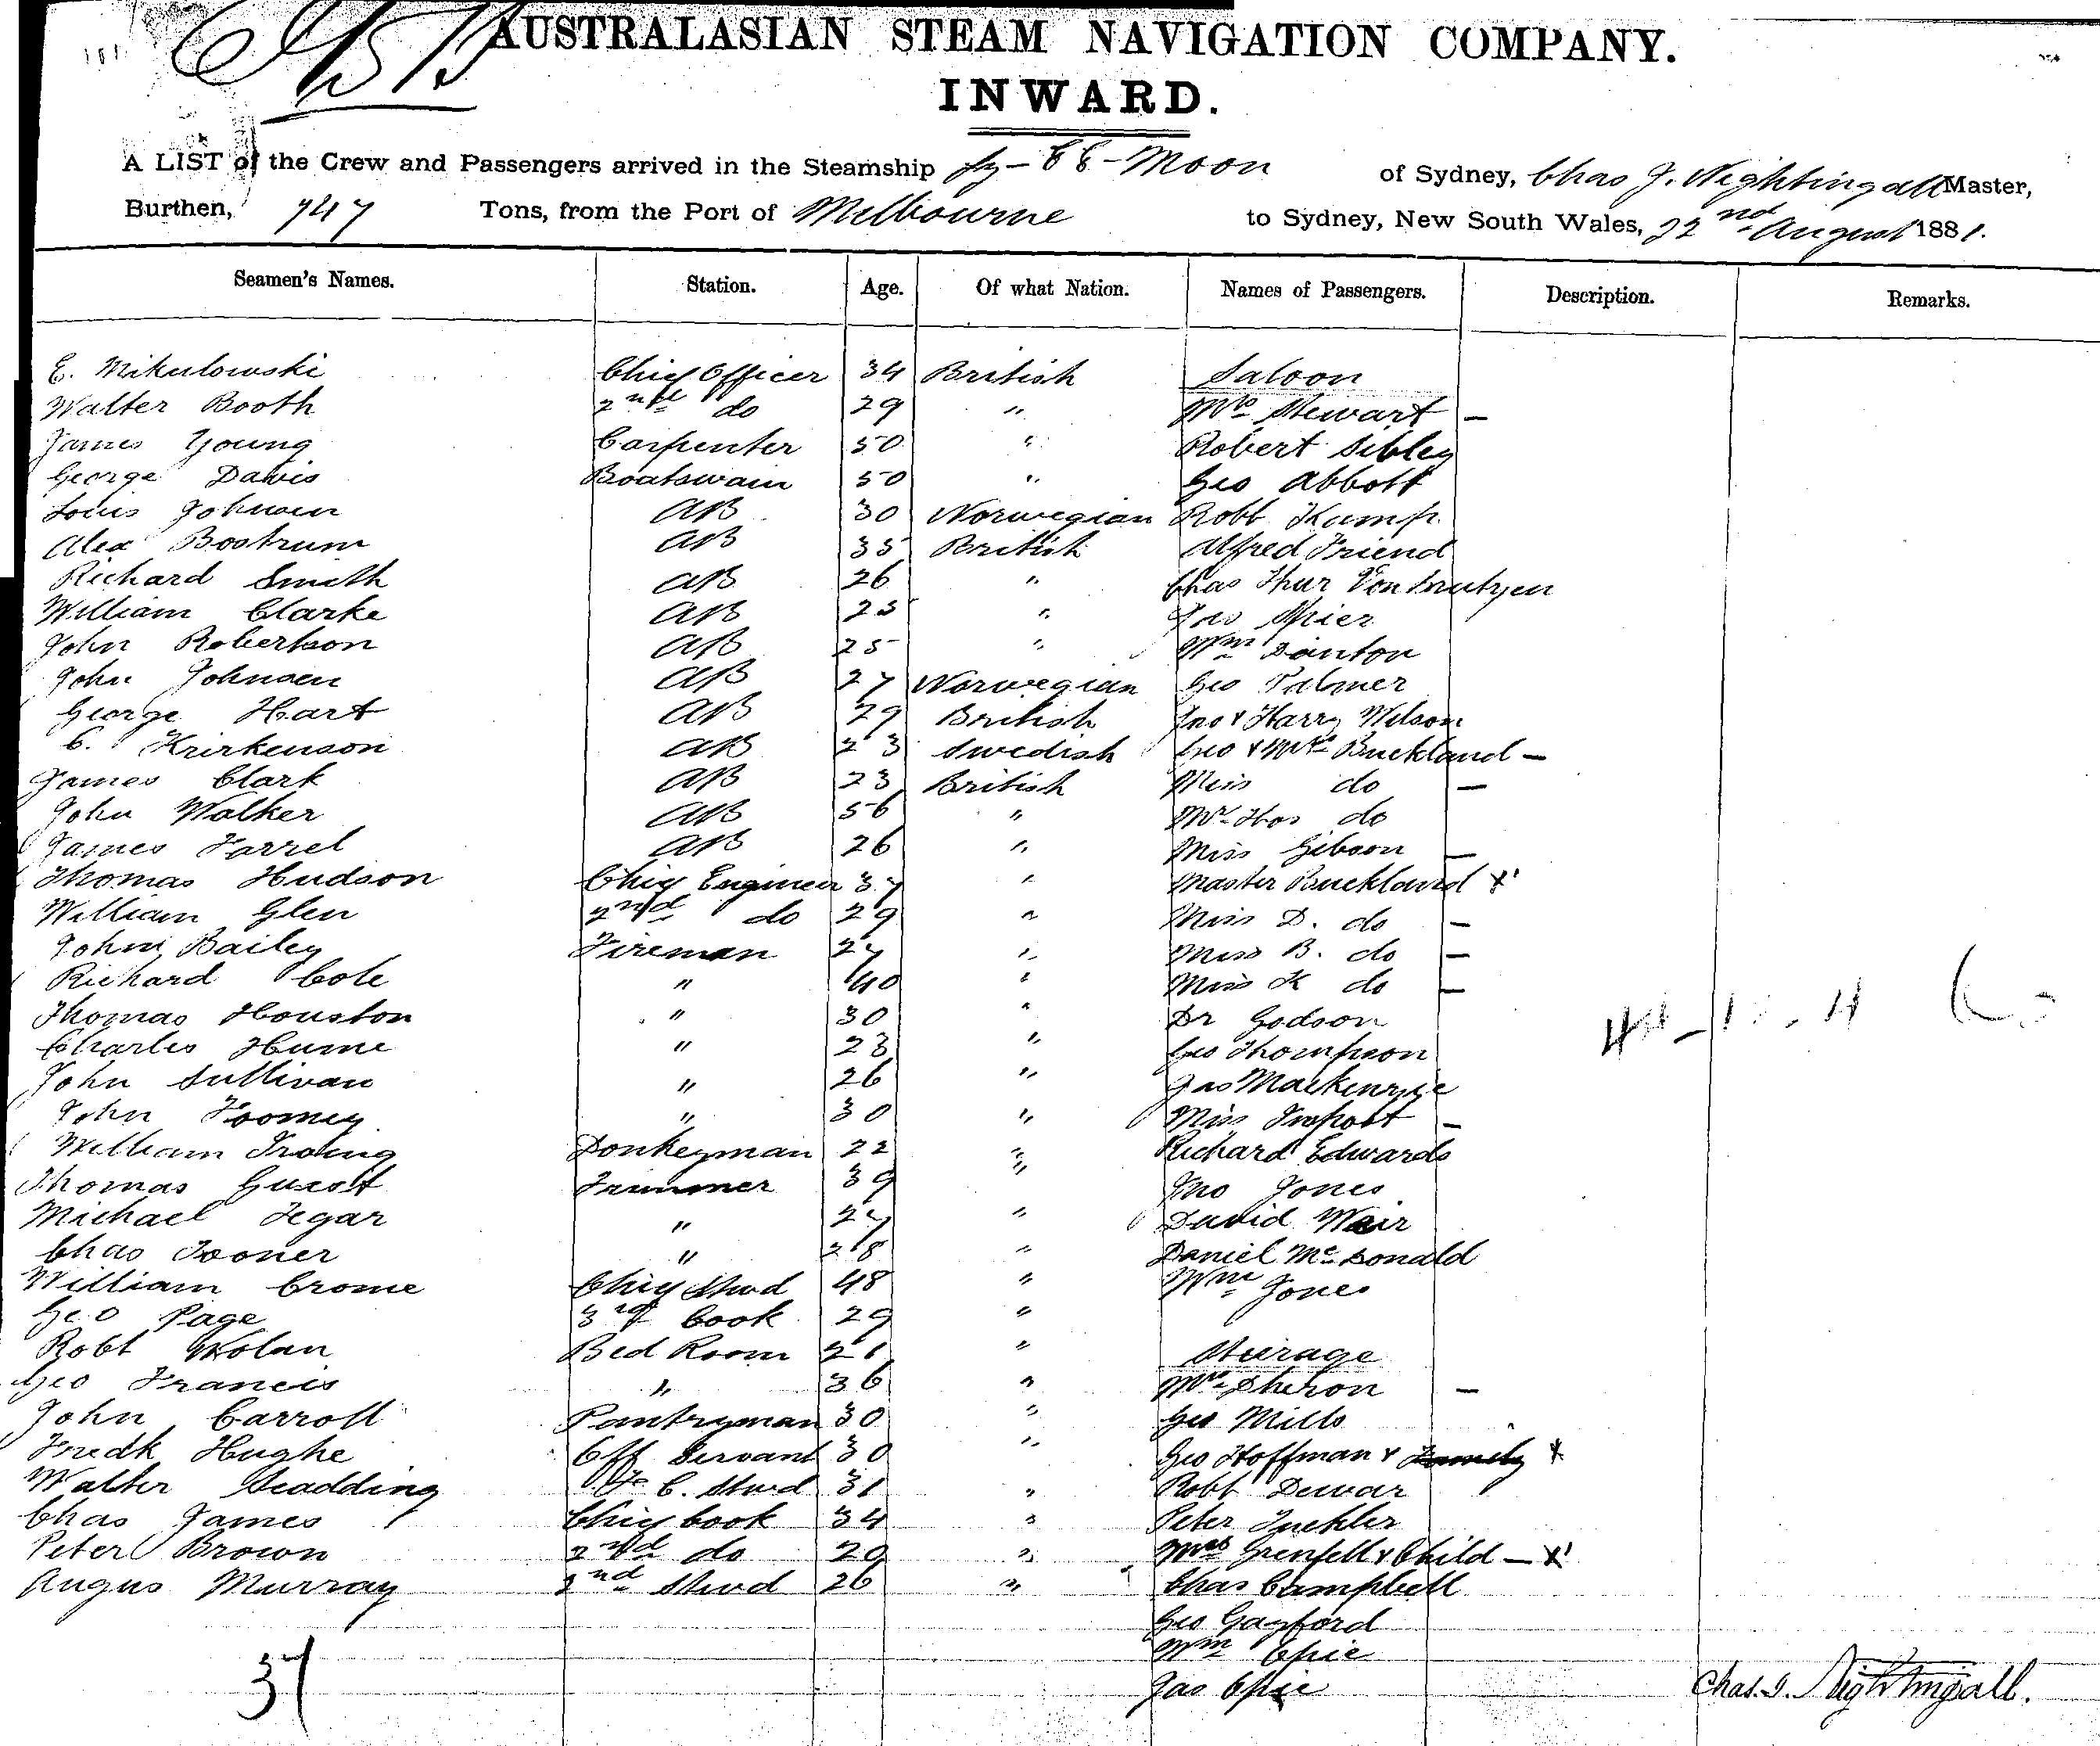 AUSTRALASIAN STEAM NAVIGATION COMPANY.
INWARD.
A LIST of the Crew and Passengers arrived in the Steamship Ly-EE-Moon of Sydney, Chas J. Nightingall Master,
Burthen, 747 Tons, from the Port of Melbourne to Sydney, New South Wales, 22nd August 1881.
Seamen's Names. Station. Age. Of what Nation. Names of Passengers. Description. Remarks.
E. Mikulowski Chief Officer 34 British Saloon
Walter Booth 2nd do 29 " Mrs Stewart —
James Young Carpenter 50 " Robert Sibley
George Davis Boatswain 50 " Geo Abbott
Louis Johnsen AB 30 Norwegian Robt Kamp
Alex Bostrum AB 35 British Alfred Friend
Richard Smith AB 26 " Chas Thur Von
William Clarke AB 25 " Jas Spier
John Robertson AB 25 " Wm Danton
John Johnsen AB 27 Norwegian Geo Palmer
George Hart AB 29 British Jno & Harry Wilson
C. Krirkenson AB 23 Swedish Geo & Mrs Buckland —
James Clark AB 23 British Miss do —
John Walker AB 56 " Mr Hos do
James Farrel AB 26 " Miss Gibson —
Thomas Hudson Chief Engineer 37 " Master Buckland x'
William Glen 2nd do 29 " Miss D. do —
John Bailey Fireman 27 " Miss B. do —
Richard Cole " 40 " Miss K do —
Thomas Houston " 30 " Dr Godson
Charles Hume " 23 " Geo Thompson
John Sullivan " 26 " Jas Mackenzie
John Toomey " 30 " Miss —
William Irving Donkeyman 22 " Richard Edwards
Thomas Guest Trimmer 39 " Jno Jones
Michael Tegar " 27 " David Weir
Chas Tooner " 28 " Daniel McDonald
William Crome Chief Stwd 48 " Wm Jones
Geo Page 3rd Cook 29 "
Robt Nolan Bed Room 21 " Steerage
Geo Francis " 36 " Mrs Sheron —
John Carroll Pantryman 30 " Geo Mills
Fredk Hughe Off Servant 30 " Geo Hoffman & Family x
Walter Scadding F C. Stwd 31 " Robt Dewar
Chas James Chief Cook 34 " Peter Tuckler
Peter Brown 2nd do 29 " Mrs Grenfell & Child — x'
Angus Murray 2nd Stwd 26 " Chas Campbell
Geo Gayford
Wm Opie
Jas Opie
37
Chas. J. Nightingall.